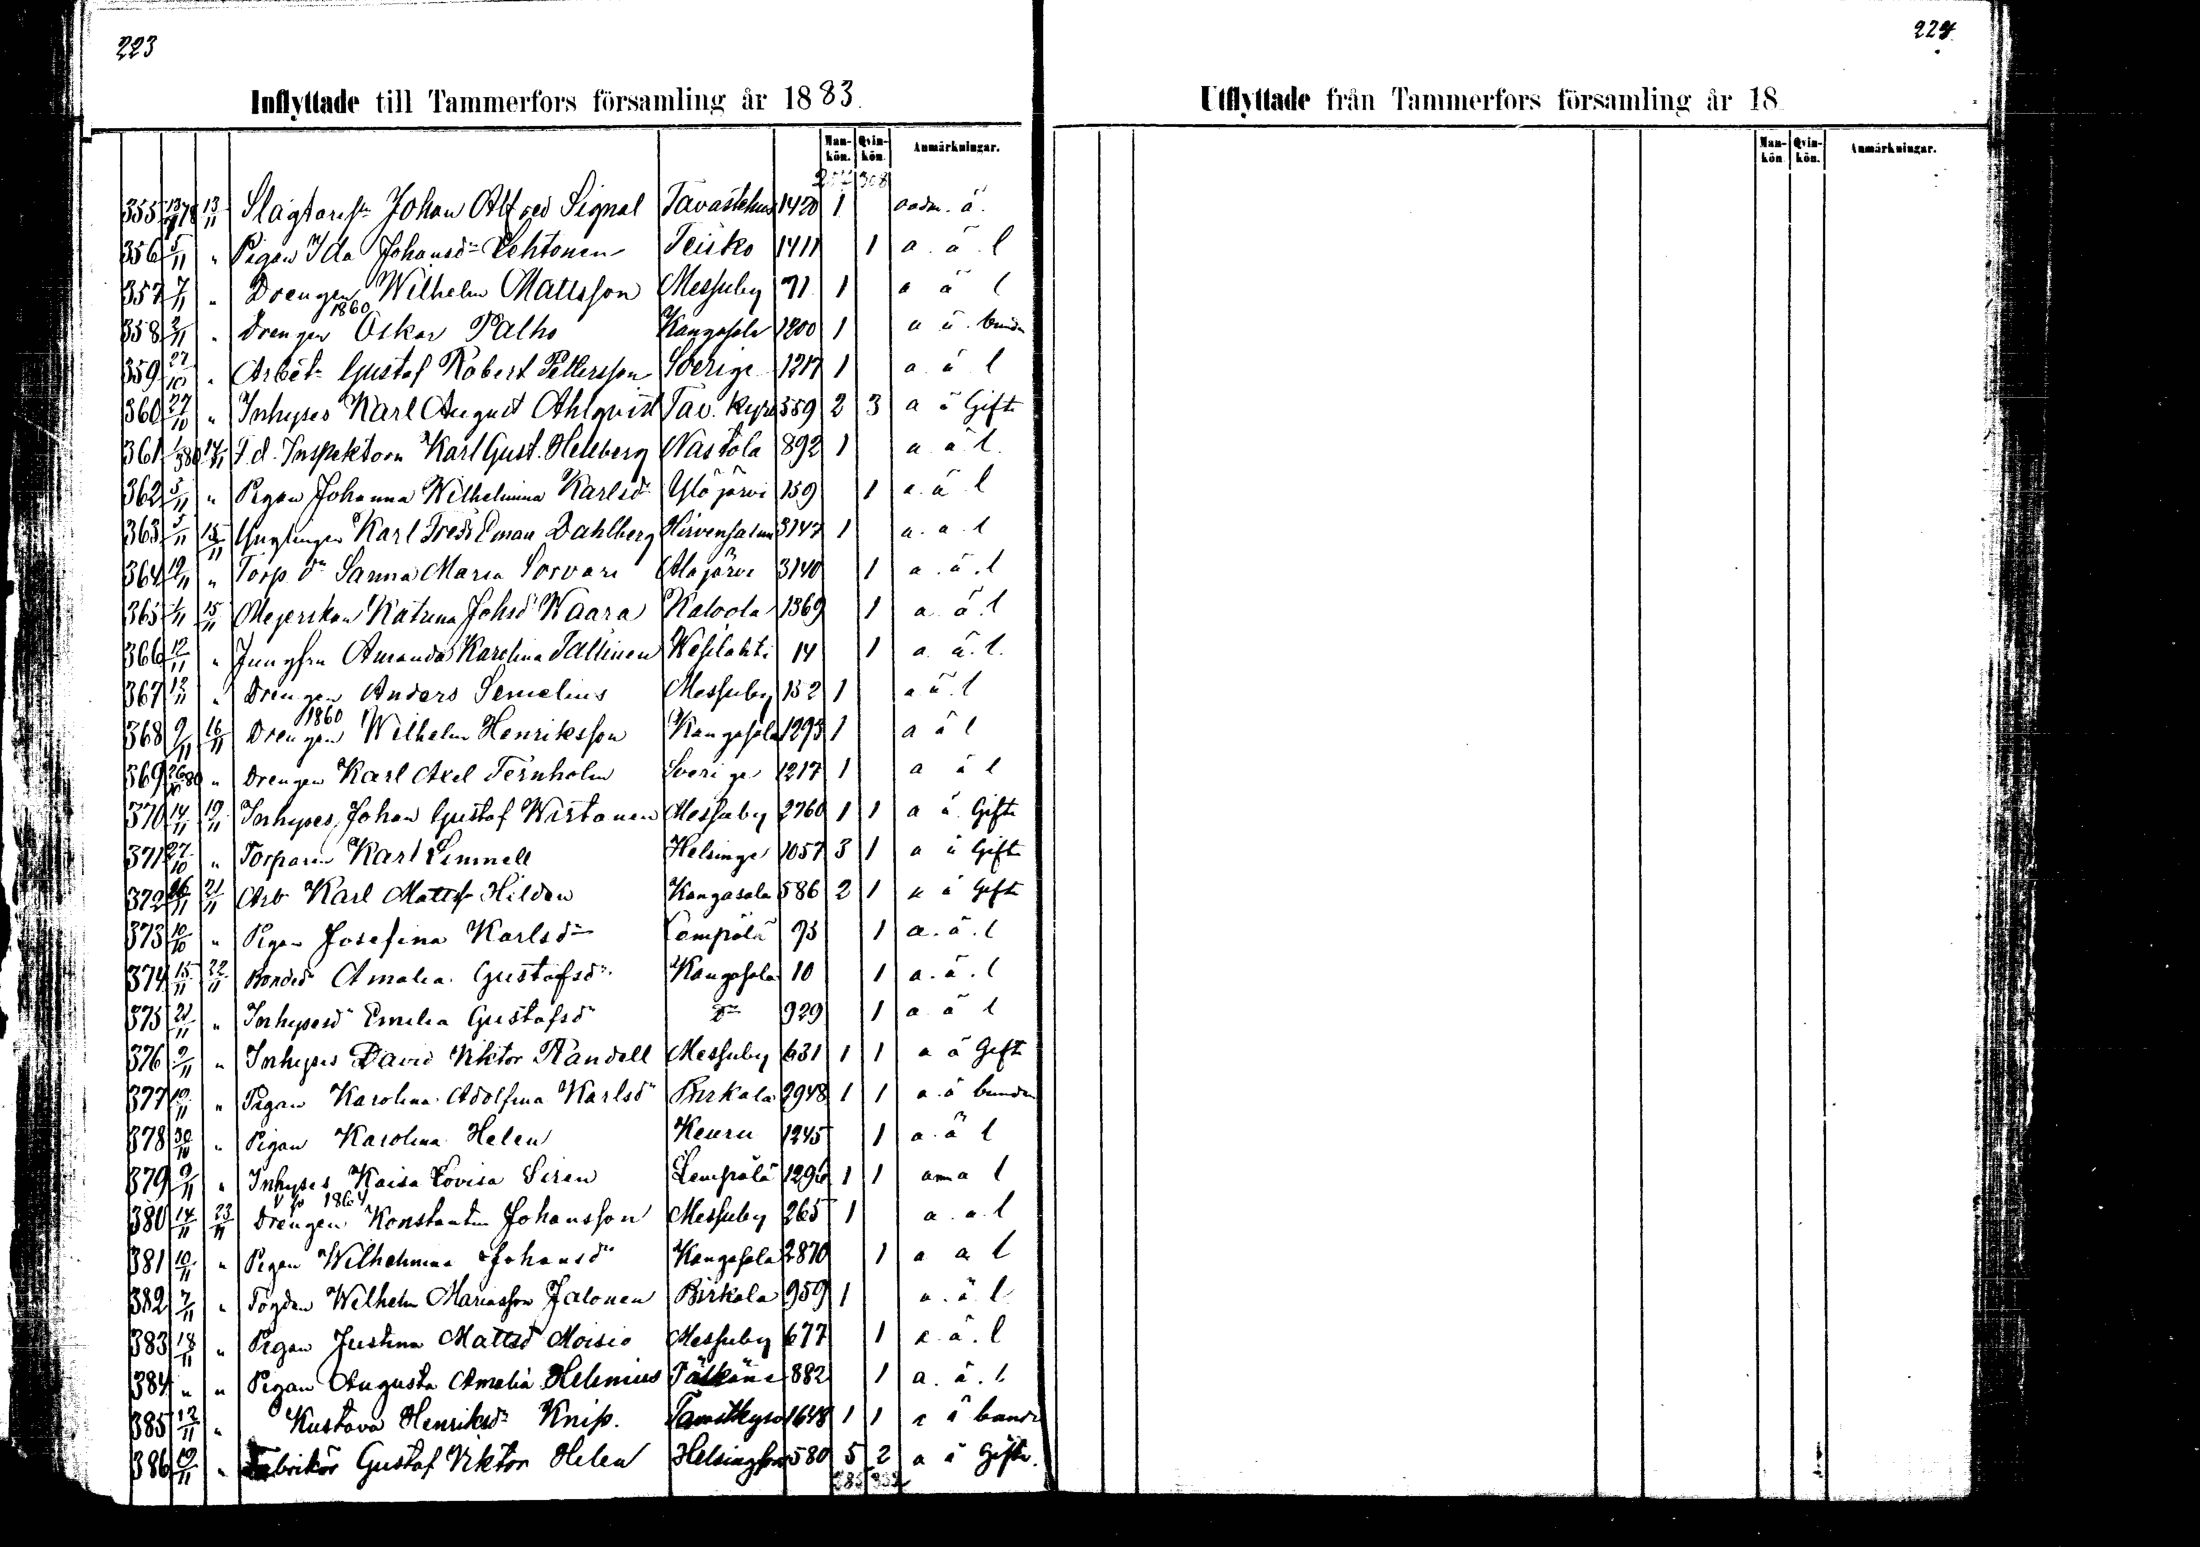 223
Inflyttade till Tammerfors församling år 1883.
Mankön. Qvinkön. Anmärkningar.
308
355 13/11 78 13/11 Slagtaresn Johan Alfred Signal Tavastehus 1420 1 oadm. ä.
356 5/11 " Pigan Ida Johansdr Lehtonen Teisko 1411 1 a. ä. l
357 7/11 " Drengen Wilhelm Mattsson Messuby 71 1 a ä l
1860
358 2/11 " Drengen Oskar Palho Kangasala 1200 1 a ä. bunden
359 27/10 " Arbet. Gustaf Robert Pettersson Sverige 1217 1 a ä l
360 27/10 " Inhyses Karl August Ahlqvist Tav. kyro 559 2 3 a ä Gift
361 14/11 F.d. Inspektorn Karl Gust. Hellberg Nastola 892 1 a ä l.
362 3/11 " Pigan Johanna Wilhelmina Karlsdr Ylöjärvi 159 1 a. ä l
363 5/11 15/11 Ynglingen Karl Fredr Eman Dahlberg Hirvensalmi 3147 1 a. a l
364 12/11 " Torp. dr Sanna Maria Sorvari Alajärvi 3140 1 a. ä. l
365 1/11 15/11 Mejerskan Katrina Johsdr Waara Kalvola 1369 1 a ä. l
366 12/11 " Jungfru Amanda Karolina Tallinen Wesilahti 14 1 a. ä. l.
367 12/11 " Drengen Anders Semelius Messuby 152 1 a ä. l
1860
368 9/11 16/11 Drengen Wilhelm Henriksson Kangasala 1293 1 a ä l
369 26/10 80 " Drengen Karl Axel Fernholm Sverige 1217 1 a ä l
370 14/11 19/11 Inhyses Johan Gustaf Wirtanen Messuby 2760 1 1 a ä. Gift
371 27/10 " Torparen Karl Limnell Helsinge 1057 3 1 a ä Gift
372 16/11 21/11 Arb Karl Mattss Hilden Kangasala 586 2 1 a ä Gift
373 10/10 " Pigan Josefina Karlsdr Lempälä 93 1 a. ä. l
374 15/11 22/11 Bondedr Amalia Gustafsdr Kangasala 10 1 a. ä. l
375 21/11 " Inhysesdr Emilia Gustafsdr do 929 1 a ä l
376 9/11 " Inhyses David Viktor Randell Messuby 631 1 1 a ä Gift
377 10/11 " Pigan Karolina Adolfina Karlsdr Birkala 2948 1 1 a. ä bunden
378 30/10 " Pigan Karolina Helen Keuru 1245 1 a. ä l
379 9/11 " Inhyses Kaisa Lovisa Siren Lempälä 1296 1 1 a l
1864
380 14/11 23/11 Drengen Konstantin Johansson Messuby 265 1 a. a. l
381 10/11 " Pigan Wilhelmina Johansdr Kangasala 2870 1 a a l
382 7/11 " Wilhelm Mariasson Jalonen Birkala 959 1 a. ä l
383 18/11 " Pigan Justina Mattsdr Moisio Messuby 677 1 a. ä. l
384 " " Pigan Augusta Amalia Helenius Pälkäne 882 1 a. ä. l
385 12/11 " Kustava Henriksdr Knip. Tavastkyro 1648 1 1 a ä bunden
386 19/11 " Fabrikör Gustaf Viktor Helen Helsingfors 580 5 2 a ä Gift.
285 332
224
Utflyttade från Tammerfors församling år 18
Mankön. Qvinkön. Anmärkningar.